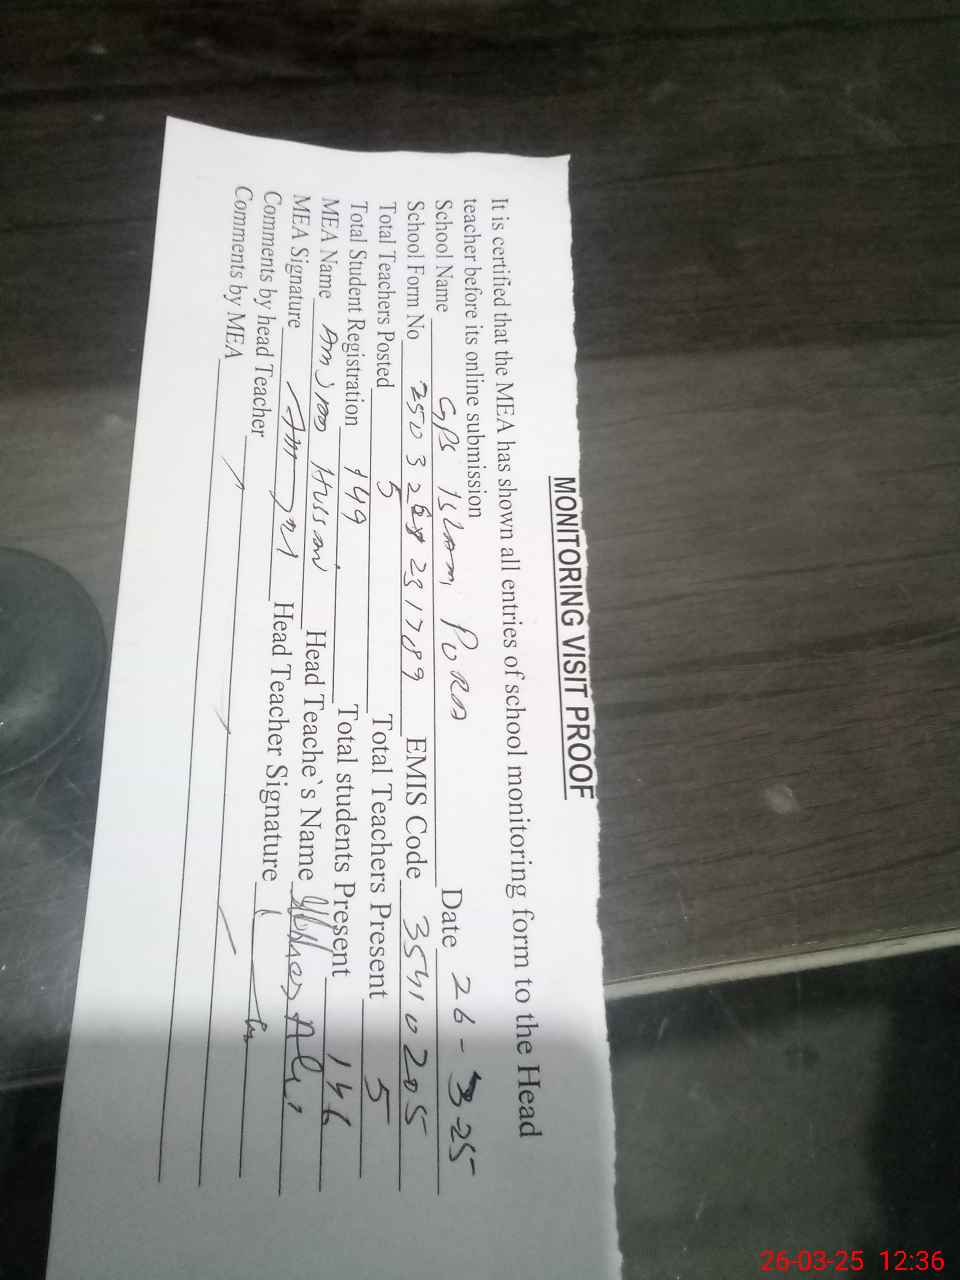 MONITORING VISIT PROOF
It is certified that the MEA has shown all entries of school monitoring form to the Head
teacher before its online submission
School Name GPS Islam Pura Date 26-3-25
School Form No EMIS Code 35410205
Total Teachers Posted 5 Total Teachers Present 5
Total Student Registration 149 Total students Present 146
MEA Name Hussain Head Teache`s Name Ali
MEA Signature Head Teacher Signature
Comments by head Teacher
Comments by MEA
26-03-25 12:36